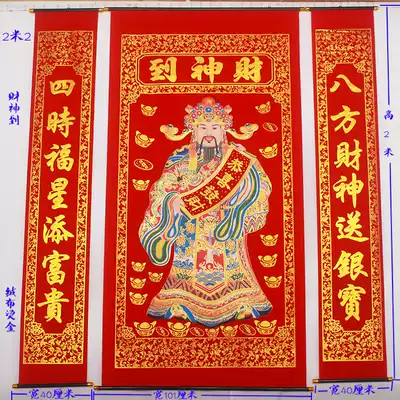 2米2
財神到
絨布燙金
到神財
恭喜發財
八方財神送銀寶
四時福星添富貴
高2米
宽40厘米
宽101厘米
宽40厘米